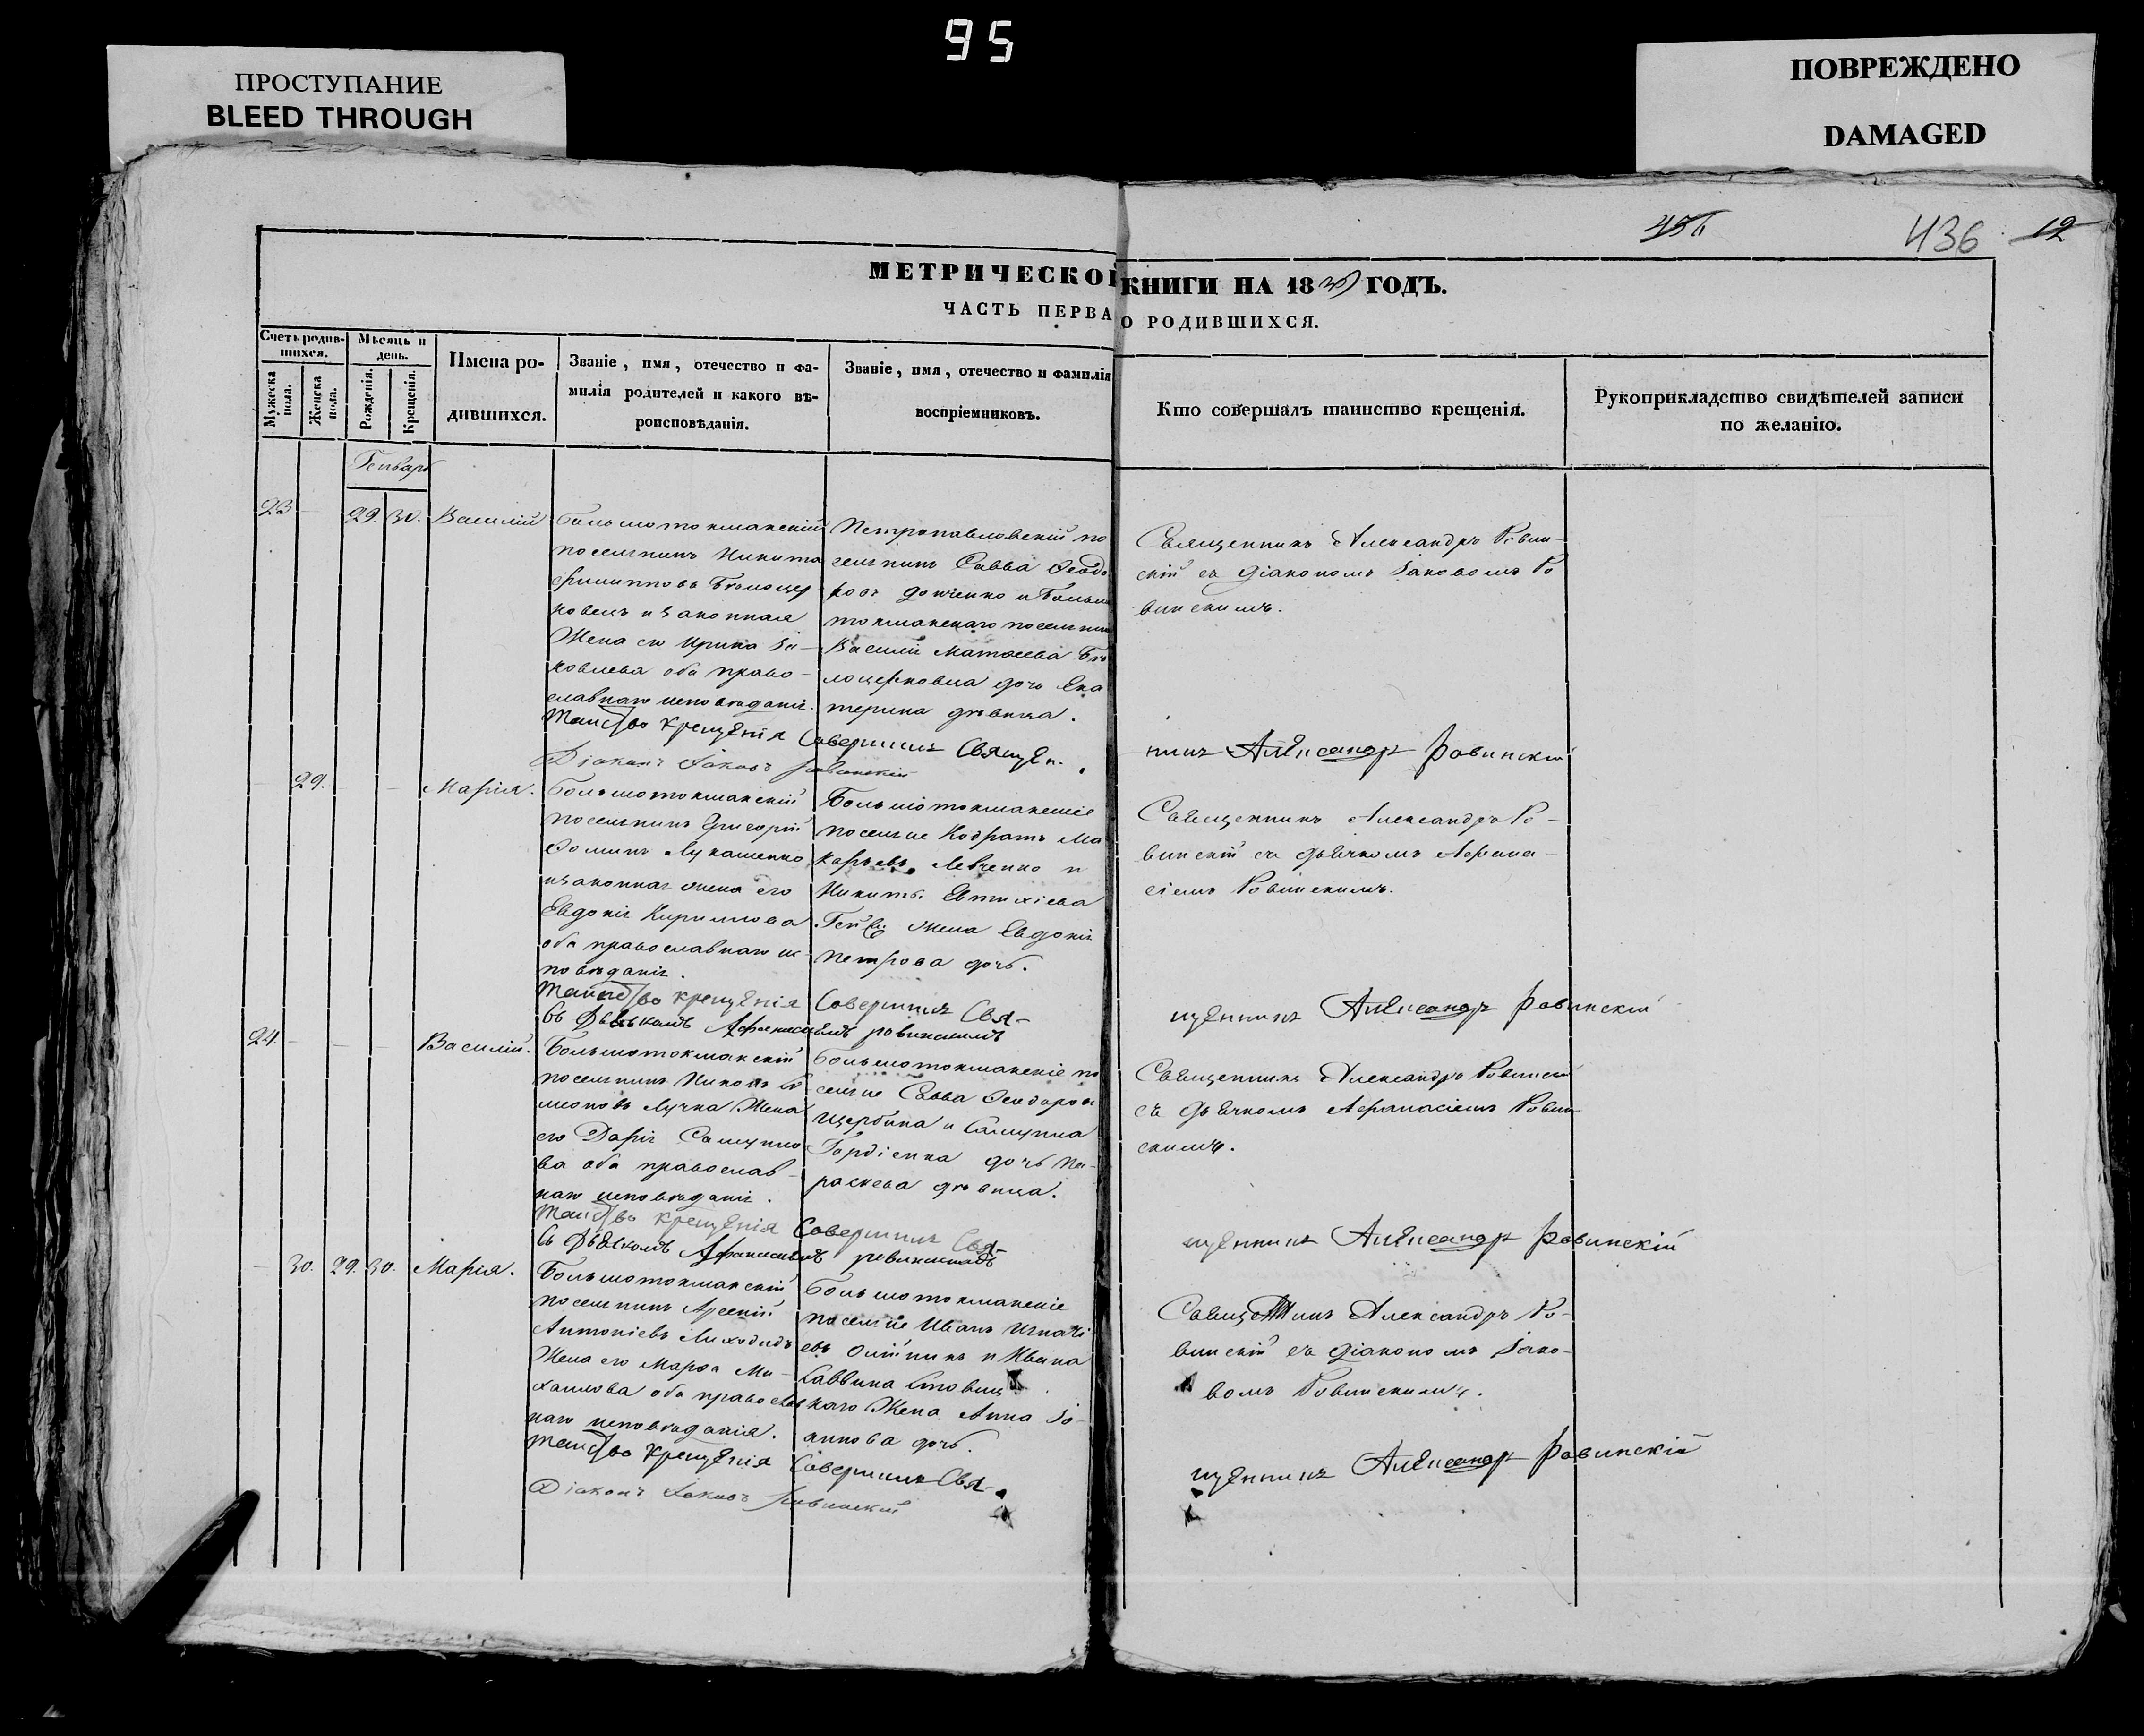 95
ПРОСТУПАНИЕ
BLEED THROUGH
ПОВРЕЖДЕНО
DAMAGED
436 12
МЕТРИЧЕСКОЙ КНИГИ НА 18 ГОДЪ.
ЧАСТЬ ПЕРВА О РОДИВШИХСЯ.
Счетъ родив-
шихся.
Мужеска
пола.
Женска
пола.
Мѣсяць и
день.
Рожденія.
Крещенія.
Имена ро-
дившихся.
Званіе, имя, отечество и фа-
милія родителей и какого вѣ-
роисповѣданія.
Званіе, имя, отечество и фамилія
воспріемниковъ.
Кто совершалъ таинство крещенія.
Рукоприкладство свидѣтелей записи
по желанію.
Генварь
23 29. 30. Василій
Большотокмакскій
поселянинъ Никита
Филипповъ Бѣлоцер
ковецъ и законная
Жена его Ирина Іа-
ковлева оба право-
славнаго исповѣданія.
Петропавловскій по
селянинъ Савва Ѳеодо
ровъ Донченко и Больше
токмакскаго поселянина
Василія Матѳеева Бѣ
лоцерковца дочь Ека
терина дѣвица.
Священникъ Александръ Рѣвин-
скій съ діакономъ Іаковомъ Ро
винскимъ.
Таинство крещенія Совершилъ Священ-
никъ Александръ Ровинскій
Діаконъ Іаковъ Ровинскій
29. Марія.
Большотокмакскій
поселянинъ Григорій
Ѳоминъ Лукашенко
и законная жена его
Евдокія Кириллова
оба православнаго ис
повѣданія.
Большотокмакскіе
поселяне Кодратъ Ма
карьевъ Левченко и
Никиты Евтихіева
жена Евдокія
Петрова дочь.
Священникъ Александръ Ро-
винскій съ дьячкомъ Афана-
сіемъ Ровинскимъ.
Таинство крещенія Совершилъ Свя-
щенникъ Александръ Ровинскій
съ Дьячкомъ Афанасіемъ ровинскимъ
24 Василій.
Большотокмакскій
поселянинъ
Лучка Жена
его Дарія Самуило
ва оба православ-
наго исповѣданія.
Большотокмакскіе по
селяне Савва Ѳеодоровъ
Щербина и Самуила
Гордіенка дочь Па-
раскева дѣвица.
Священникъ Александръ Ровинскій
съ дьячкомъ Афанасіемъ Ровин
скимъ.
Таинство крещенія Совершилъ Свя-
щенникъ Александръ Ровинскій
съ Дьячкомъ Афанасіемъ ровинскимъ
30. 29. 30. Марія.
Большотокмакскій
поселянинъ Арсеній
Антоніевъ Лиходидъ
Жена его Марѳа Ми-
хаилова оба православ
наго исповѣданія.
Большотокмакскіе
поселяне Иванъ Игнаті
евъ Олійникъ и Ивана
Саввина
каго Жена Анна Іо-
аннова дочь.
Священникъ Александръ Ро-
винскій съ діакономъ Іако-
вомъ Ровинскимъ.
Таинство крещенія Совершилъ Свя-
щенникъ Александръ Ровинскій
Діаконъ Іаковъ Ровинскій